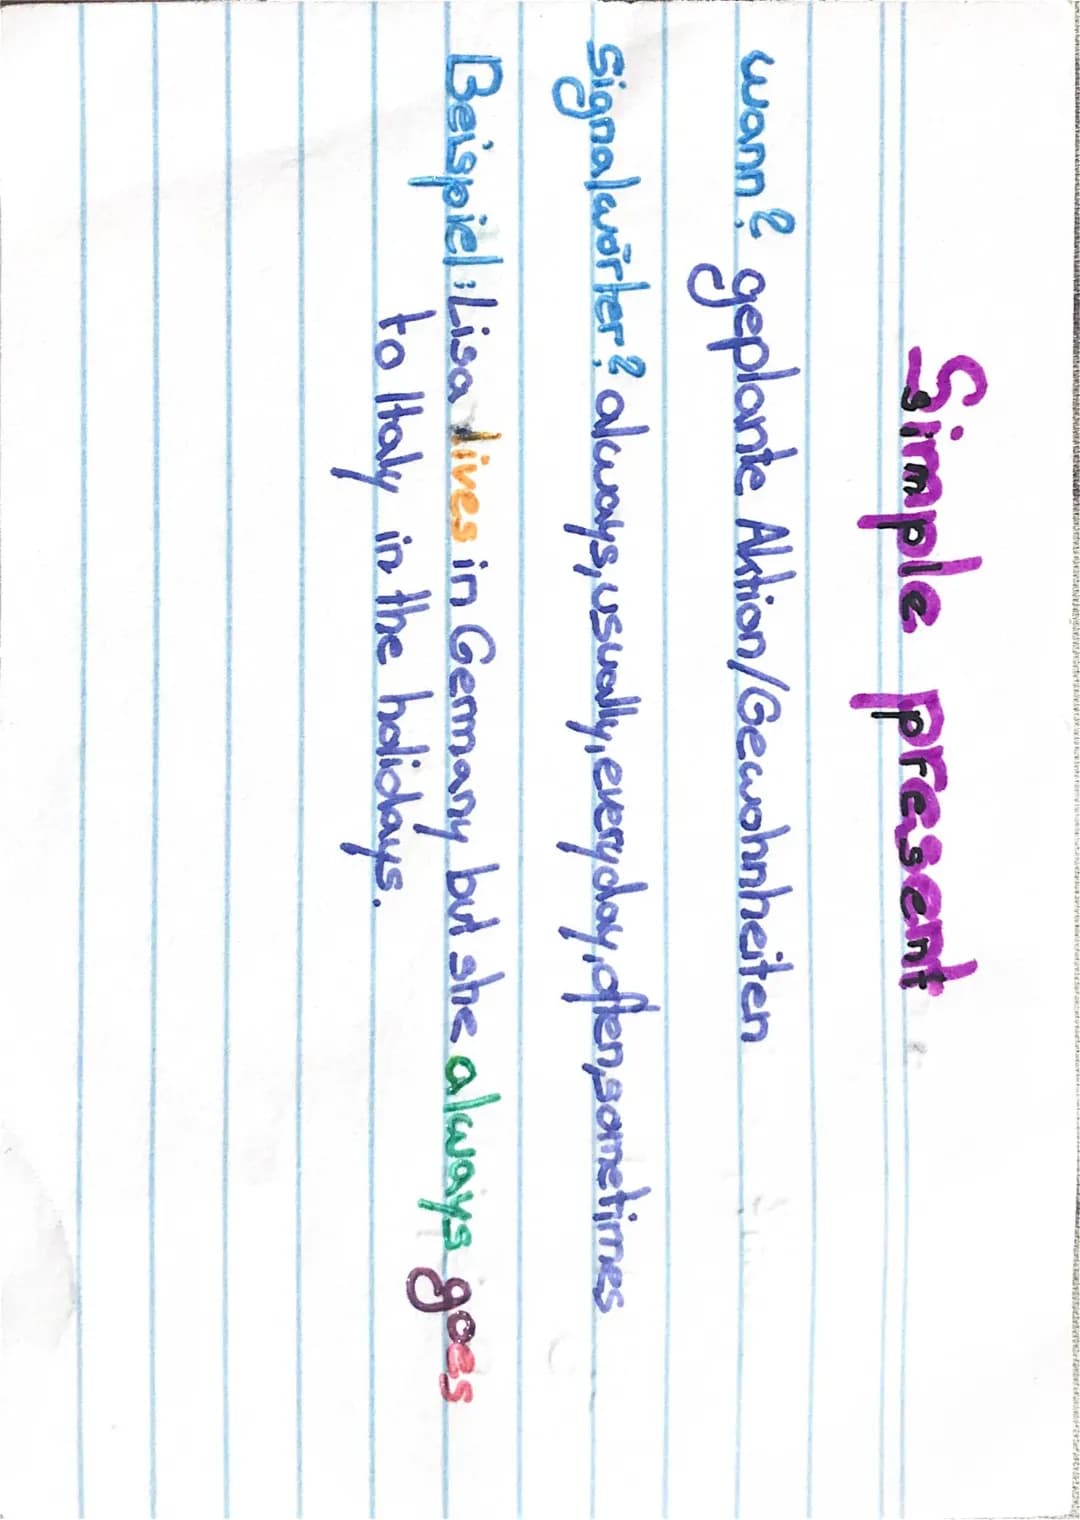 Simple present
wann? geplante Aktion/Gewohnheiten
Signalwörter? always, usually, every day, often, sometimes
Beispiel: Lisa lives in Germany but she always goes
to Italy in the holidays.